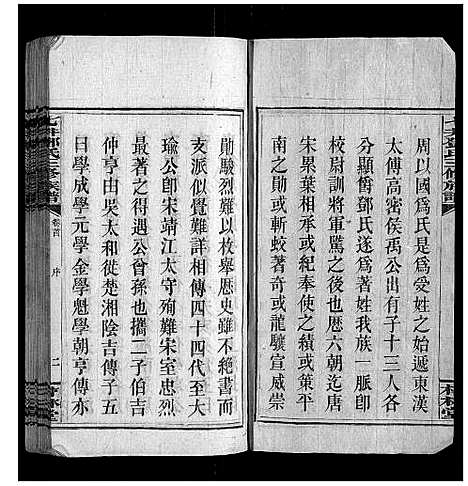 周以國爲氏是爲受姓之始遞東漢
太傅高密侯禹公出有子十三人各
分顯爵鄧氏遂爲著姓我族一脈卽
校尉訓將軍騭之後也厯六朝迄唐
宋果葉相承或紀奉使之績或策平
南之勳或斬蛟著奇或龍驤宣威崇
勛駿烈難以枚舉厯史雖不絶書而
支派似覺難詳相傳四十四代諱
瑜公卽宋靖江太守殉難宋室忠烈
著之得遇公曾孫也攜二子伯吉
仲亨由吳太和徙楚湘陰吉傳子五
曰學成學元學金學魁學朝亨傳亦
氏三修族譜
卷首
序
二
桂林堂